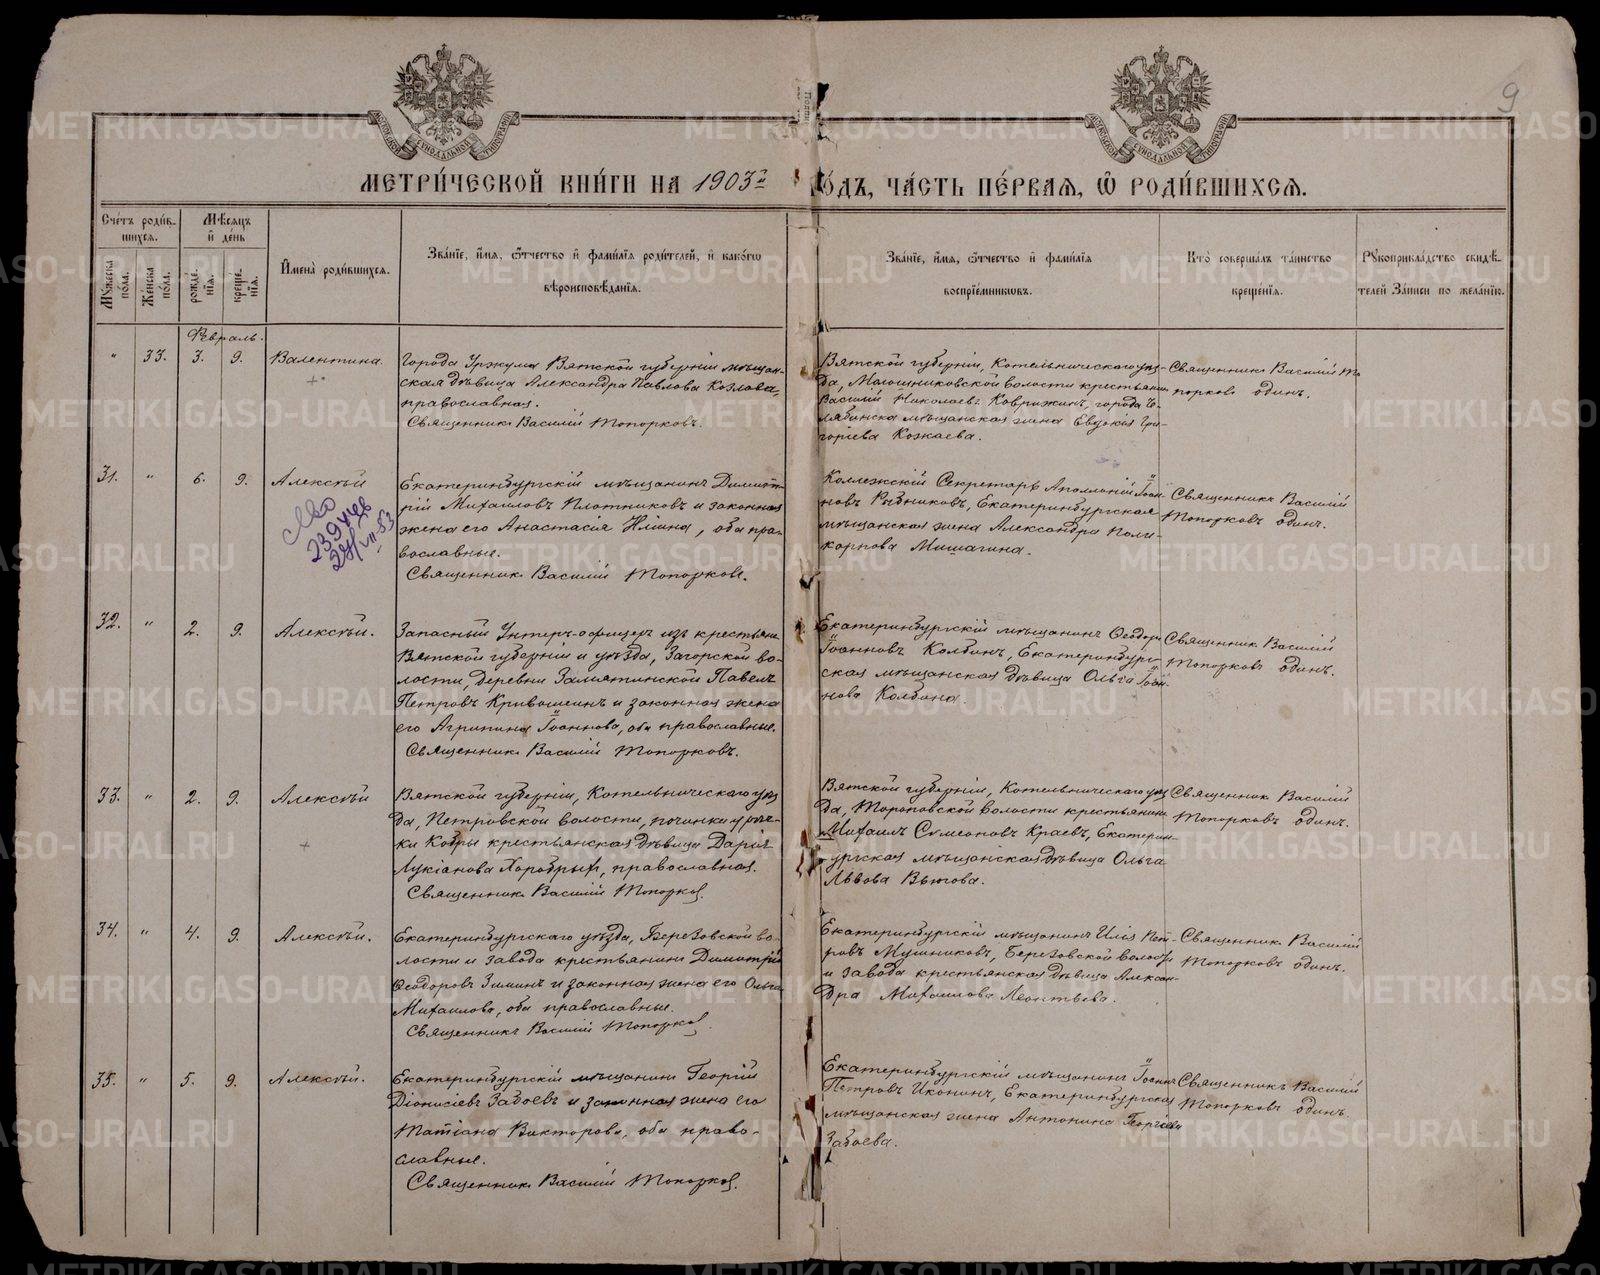 9
МОСКОВСКОЙ СѴНОДАЛЬНОЙ ТИПОГРАФІИ
МОСКОВСКОЙ СѴНОДАЛЬНОЙ ТИПОГРАФІИ
МЕТРИ́ЧЕСКОЙ КНИ́ГИ НА 1903й ГО́ДЪ, ЧА́СТЬ ПЕ́РВАЯ, Ѽ РОДИ́ВШИХСЯ.
Сче́тъ роди́в-
шихся.
Мꙋ́жеска по́ла.
Же́нска по́ла.
Мѣ́сяцъ
и҆ де́нь
рожде́нїя.
креще́нїя.
И҆мена̀ роди́вшихся.
Зва́нїе, и҆́мя, ѻ҆́тчество и҆ фами́лїя роди́телей, и҆ како́гѡ
вѣроисповѣ́данїя.
Зва́нїе, и҆́мя, ѻ҆́тчество и҆ фами́лїя
воспрїе́мникѡвъ.
Кто̀ соверша́лъ та́инство
креще́нїя.
Рꙋкоприкла́дство свидѣ́-
телей за́писи по жела́нїю.
Февраль.
" 33. 3. 9. Валентина.
Города Уржума Вятской губерніи мѣщан-
ская дѣвица Александра Павлова Козлова,
православная.
Священникъ Василій Топорковъ.
Вятской губерніи, Котельническаго уѣз-
да, Малошниковской волости крестьянинъ
Василій Николаевъ Коврижинъ, города Че-
лябинска мѣщанская жена Евдокія Гри-
горіева Кожаева.
Священникъ Василій То
порковъ одинъ.
31. " 6. 9. Алексѣй
239
Екатеринбургскій мѣщанинъ Димит-
рій Михаиловъ Плотниковъ и законная
жена его Анастасія Иліина, оба пра-
вославные.
Священникъ Василій Топорковъ.
Коллежскій Секретарь Аполлоній Іоан-
новъ Рыбниковъ, Екатеринбургская
мѣщанская жена Александра Поли-
карпова Мишагина.
Священникъ Василій
Топорковъ одинъ.
32. " 2. 9. Алексѣй.
Запасный Унтеръ-офицеръ изъ крестьянъ
Вятской губерніи и уѣзда, Загорской во-
лости, деревни Замятинской Павелъ
Петровъ Кривошеинъ и законная жена
его Агрипина Іоаннова, оба православные.
Священникъ Василій Топорковъ.
Екатеринбургскій мѣщанинъ Ѳеодоръ
Іоанновъ Колбинъ, Екатеринбург-
ская мѣщанская дѣвица Ольга Іоан-
нова Колбина.
Священникъ Василій
Топорковъ одинъ.
33. " 2. 9. Алексѣй
Вятской губерніи, Котельническаго уѣз
да, Петровской волости, починка рѣч-
ки Кобры крестьянская дѣвица Дарія
Лукіанова Хоробрыхъ, православная.
Священникъ Василій Топорковъ
Вятской губерніи, Котельническаго уѣз
да, Тороповской волости крестьянинъ
Михаилъ Симеоновъ Краевъ, Екатерин-
бургская мѣщанская дѣвица Ольга
Львова Вьюгова.
Священникъ Василій
Топорковъ одинъ.
34. " 4. 9. Алексѣй.
Екатеринбургскаго уѣзда, Березовской во-
лости и завода крестьянинъ Димитрій
Ѳеодоровъ Зиминъ и законная жена его Ольга
Михаилова, оба православные.
Священникъ Василій Топорковъ.
Екатеринбургскій мѣщанинъ Илія Пет-
ровъ Мушниковъ, Березовской волости
и завода крестьянская дѣвица Алексан-
дра Михаилова Леонтьева.
Священникъ Василій
Топорковъ одинъ.
35. " 5. 9. Алексѣй.
Екатеринбургскій мѣщанинъ Георгій
Діонисіевъ Забоевъ и законная жена его
Татіана Викторова, оба право-
славные.
Священникъ Василій Топорковъ.
Екатеринбургскій мѣщанинъ Іоаннъ
Петровъ Иконинъ, Екатеринбургская
мѣщанская жена Антонина Георгіева
Забоева.
Священникъ Василій
Топорковъ одинъ.
METRIKI.GASO-URAL.RU